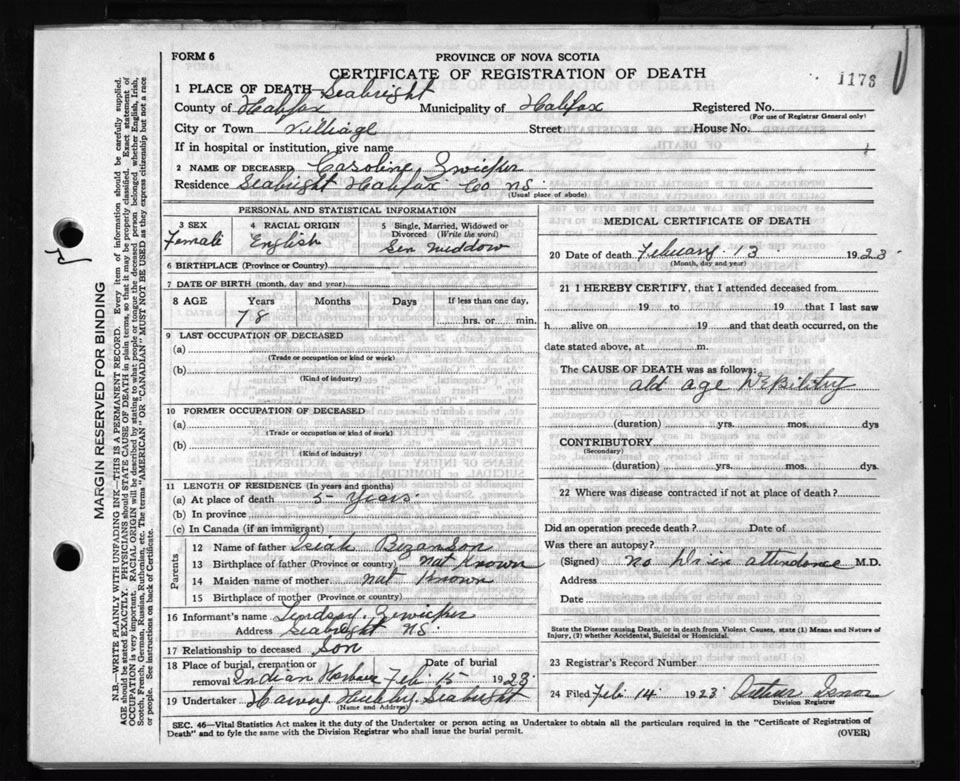 FORM 6
PROVINCE OF NOVA SCOTIA
CERTIFICATE OF REGISTRATION OF DEATH
1173
1 PLACE OF DEATH Seabright
County of Halifax Municipality of Halifax Registered No.
(For use of Registrar General only)
City or Town Villiagl Street House No.
If in hospital or institution, give name
2 NAME OF DECEASED Casoline Zwicker
Residence Seabright Halifax Co NS
(Usual place of abode)
PERSONAL AND STATISTICAL INFORMATION
3 SEX Female
4 RACIAL ORIGIN English
5 Single, Married, Widowed or Divorced (Write the word)
6 BIRTHPLACE (Province or Country)
7 DATE OF BIRTH (month, day and year)
8 AGE Years Months Days If less than one day,
78 hrs. or min.
9 LAST OCCUPATION OF DECEASED
(a)
(Trade or occupation or kind or work)
(b)
(Kind of industry)
10 FORMER OCCUPATION OF DECEASED
(a)
(Trade or occupation or kind of work)
(b)
(Kind of industry)
11 LENGTH OF RESIDENCE (In years and months)
(a) At place of death 5 Years
(b) In province
(c) In Canada (if an immigrant)
Parents
12 Name of father Isiah Bezanson
13 Birthplace of father (Province or country) Nat Known
14 Maiden name of mother nat Known
15 Birthplace of mother (Province or country)
16 Informant's name Lindsay Zewicker
Address Seabright NS
17 Relationship to deceased Son
18 Place of burial, cremation or removal Indian Harbour Date of burial Feb 15 1923
19 Undertaker Harvy Hubley Seabright
(Name and Address)
MEDICAL CERTIFICATE OF DEATH
20 Date of death February 13 1923
(Month, day and year)
21 I HEREBY CERTIFY, that I attended deceased from
19 to 19 that I last saw
h alive on 19 and that death occurred, on the
date stated above, at m.
The CAUSE OF DEATH was as follows:
old age Debility
(duration) yrs. mos. dys
CONTRIBUTORY
(Secondary)
(duration) yrs. mos. dys.
22 Where was disease contracted if not at place of death?
Did an operation precede death? Date of
Was there an autopsy?
(Signed) no Dr in attendance M.D.
Address
Date
State the Disease causing Death, or in death from Violent Causes, state (1) Means and Nature of
Injury, (2) whether Accidental, Suicidal or Homicidal.
23 Registrar's Record Number
24 Filed Feb 14 1923 Arthur Isnor
Division Registrar
SEC. 46—Vital Statistics Act makes it the duty of the Undertaker or person acting as Undertaker to obtain all the particulars required in the "Certificate of Registration of
Death" and to fyle the same with the Division Registrar who shall issue the burial permit. (OVER)
MARGIN RESERVED FOR BINDING
N.B.—WRITE PLAINLY WITH UNFADING INK—THIS IS A PERMANENT RECORD. Every item of information should be carefully supplied.
AGE should be stated EXACTLY. PHYSICIANS should STATE CAUSE OF DEATH in plain terms, so that it may be properly classified. Exact statement of
OCCUPATION is very important. RACIAL ORIGIN will be described by stating to what people or tongue the deceased person belonged whether English, Irish,
Scotch, French, German, Russian, Ruthenian, etc. The terms "AMERICAN" OR "CANADIAN" MUST NOT BE USED as they express citizenship but not a race
or people. See instructions on back of Certificate.